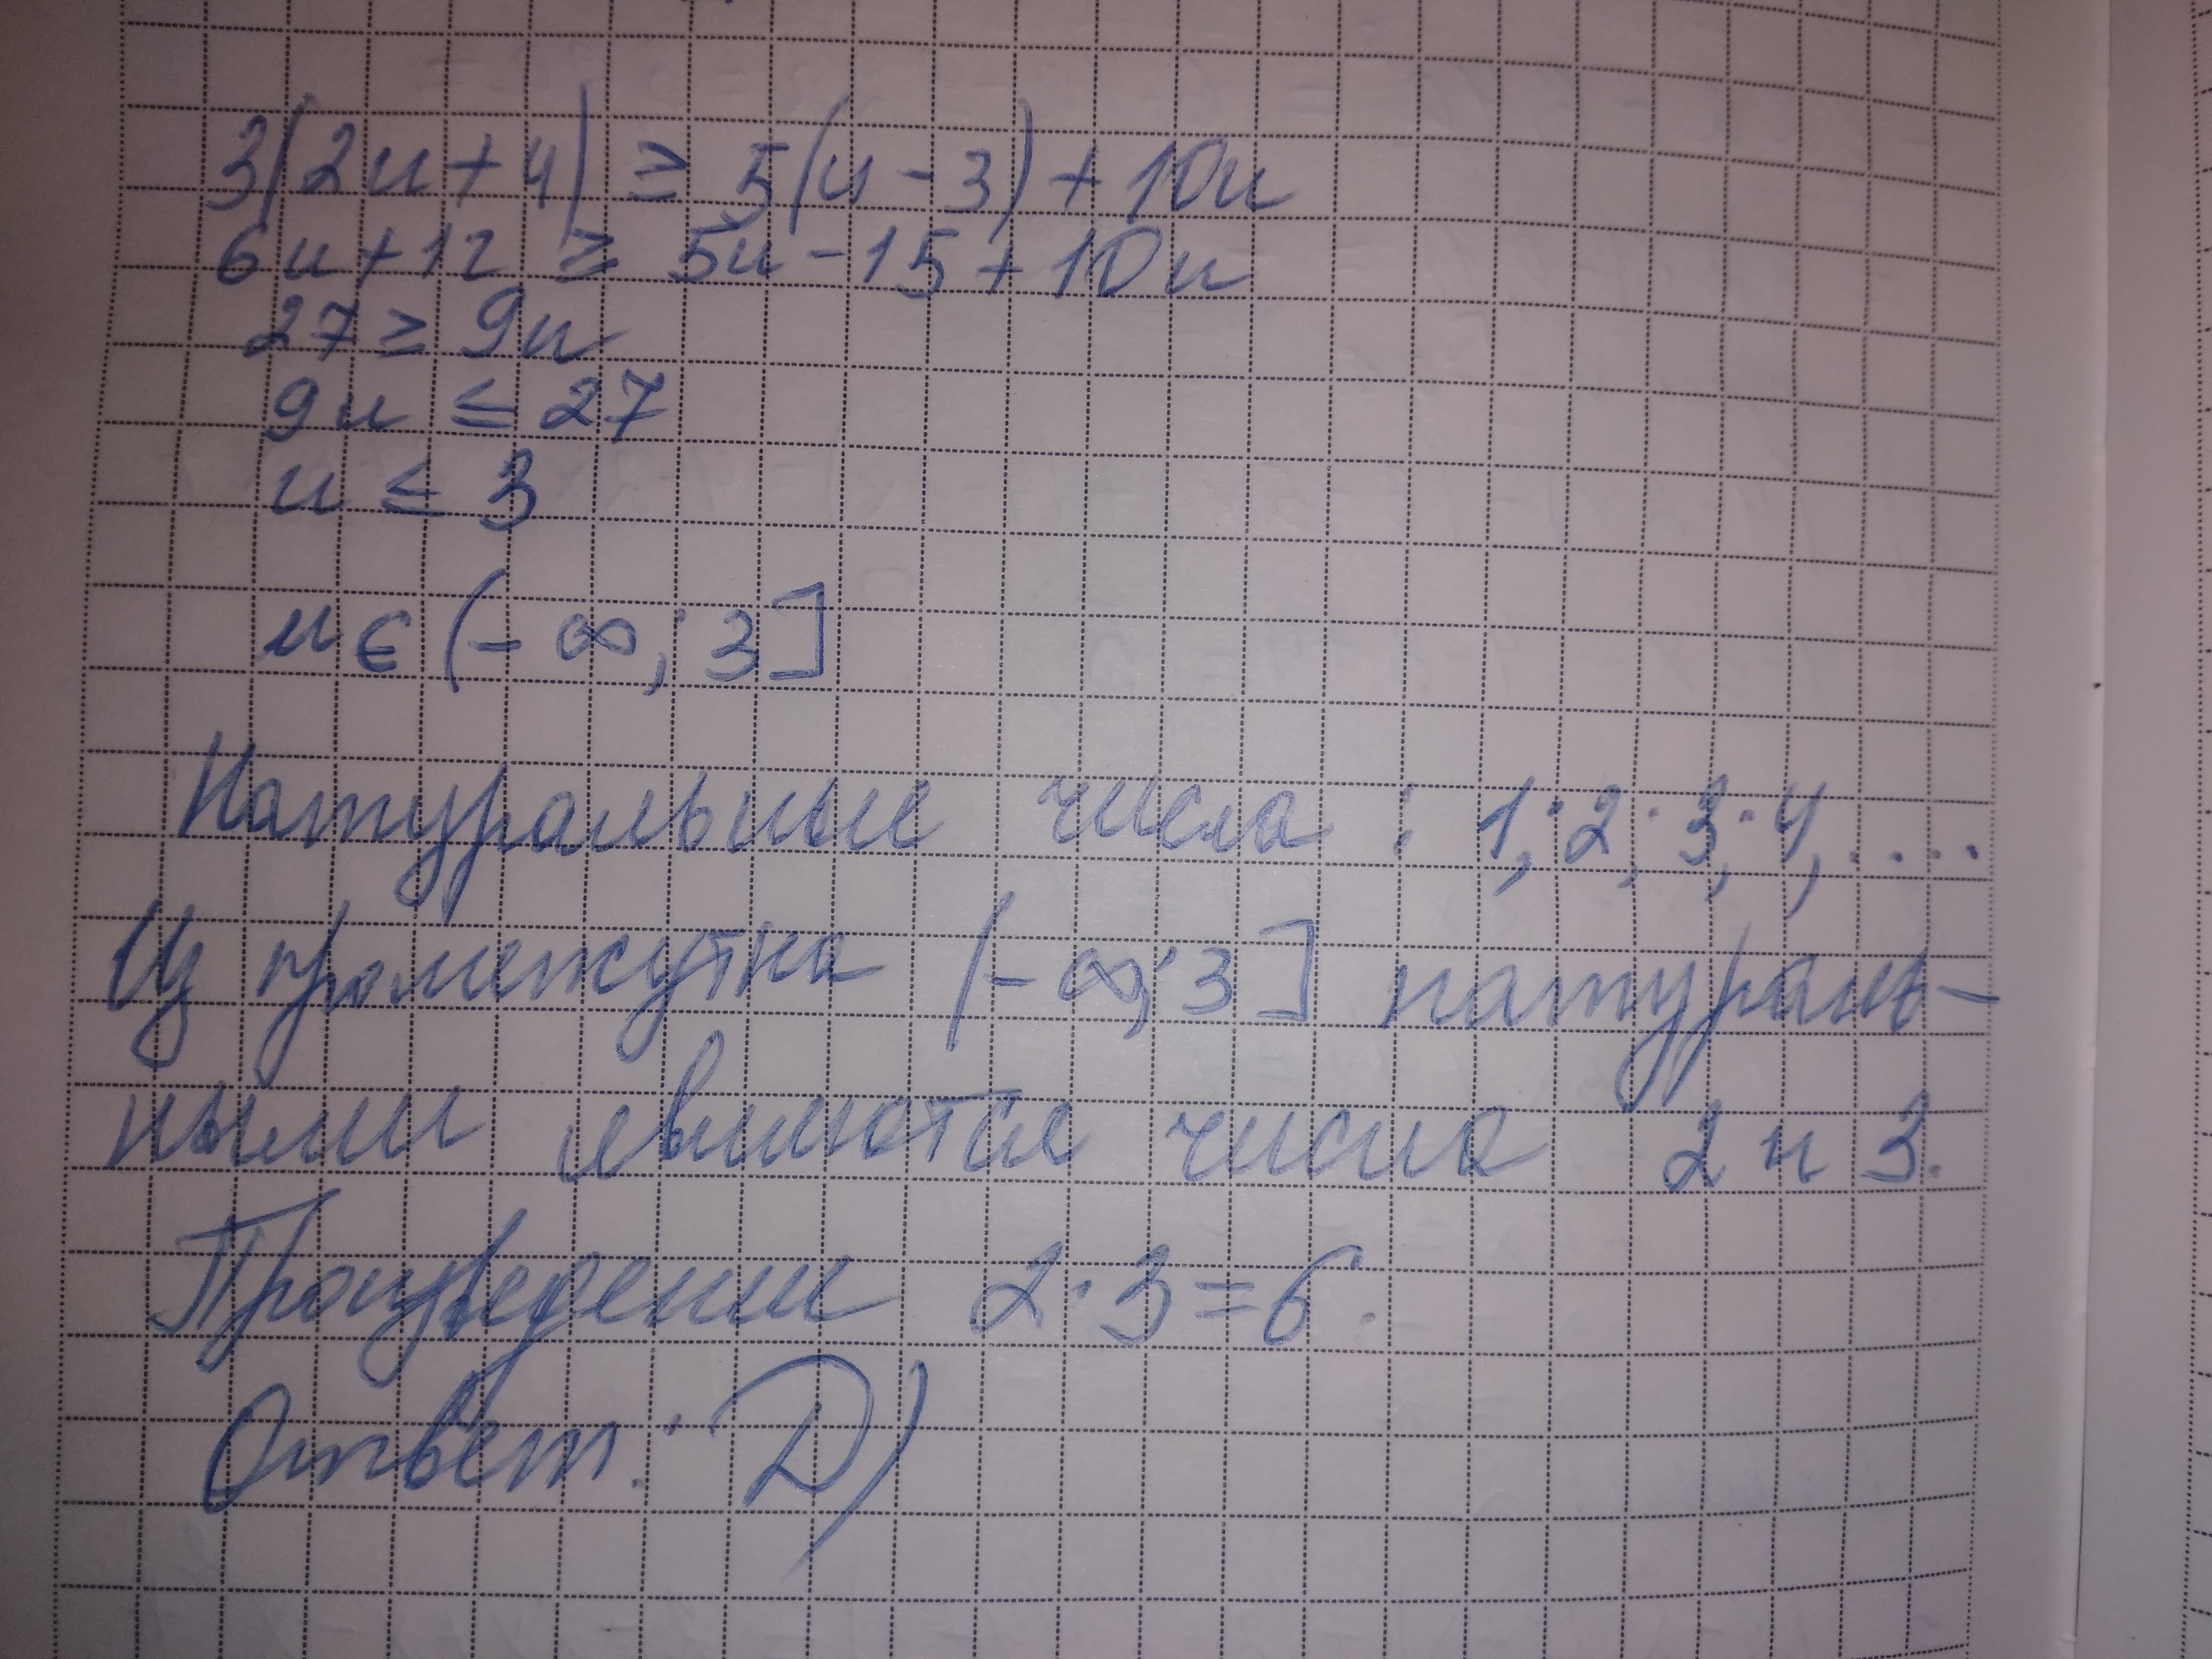 3(2u+4) ≥ 5(u-3)+10u
6u+12 ≥ 5u-15+10u
27 ≥ 9u
9u ≤ 27
u ≤ 3
u ∈ (-∞; 3]
Натуральные числа: 1; 2; 3; 4, ....
Из промежутка (-∞; 3] натураль-
ными являются числа 2 и 3.
Произведении 2·3=6.
Ответ: D)